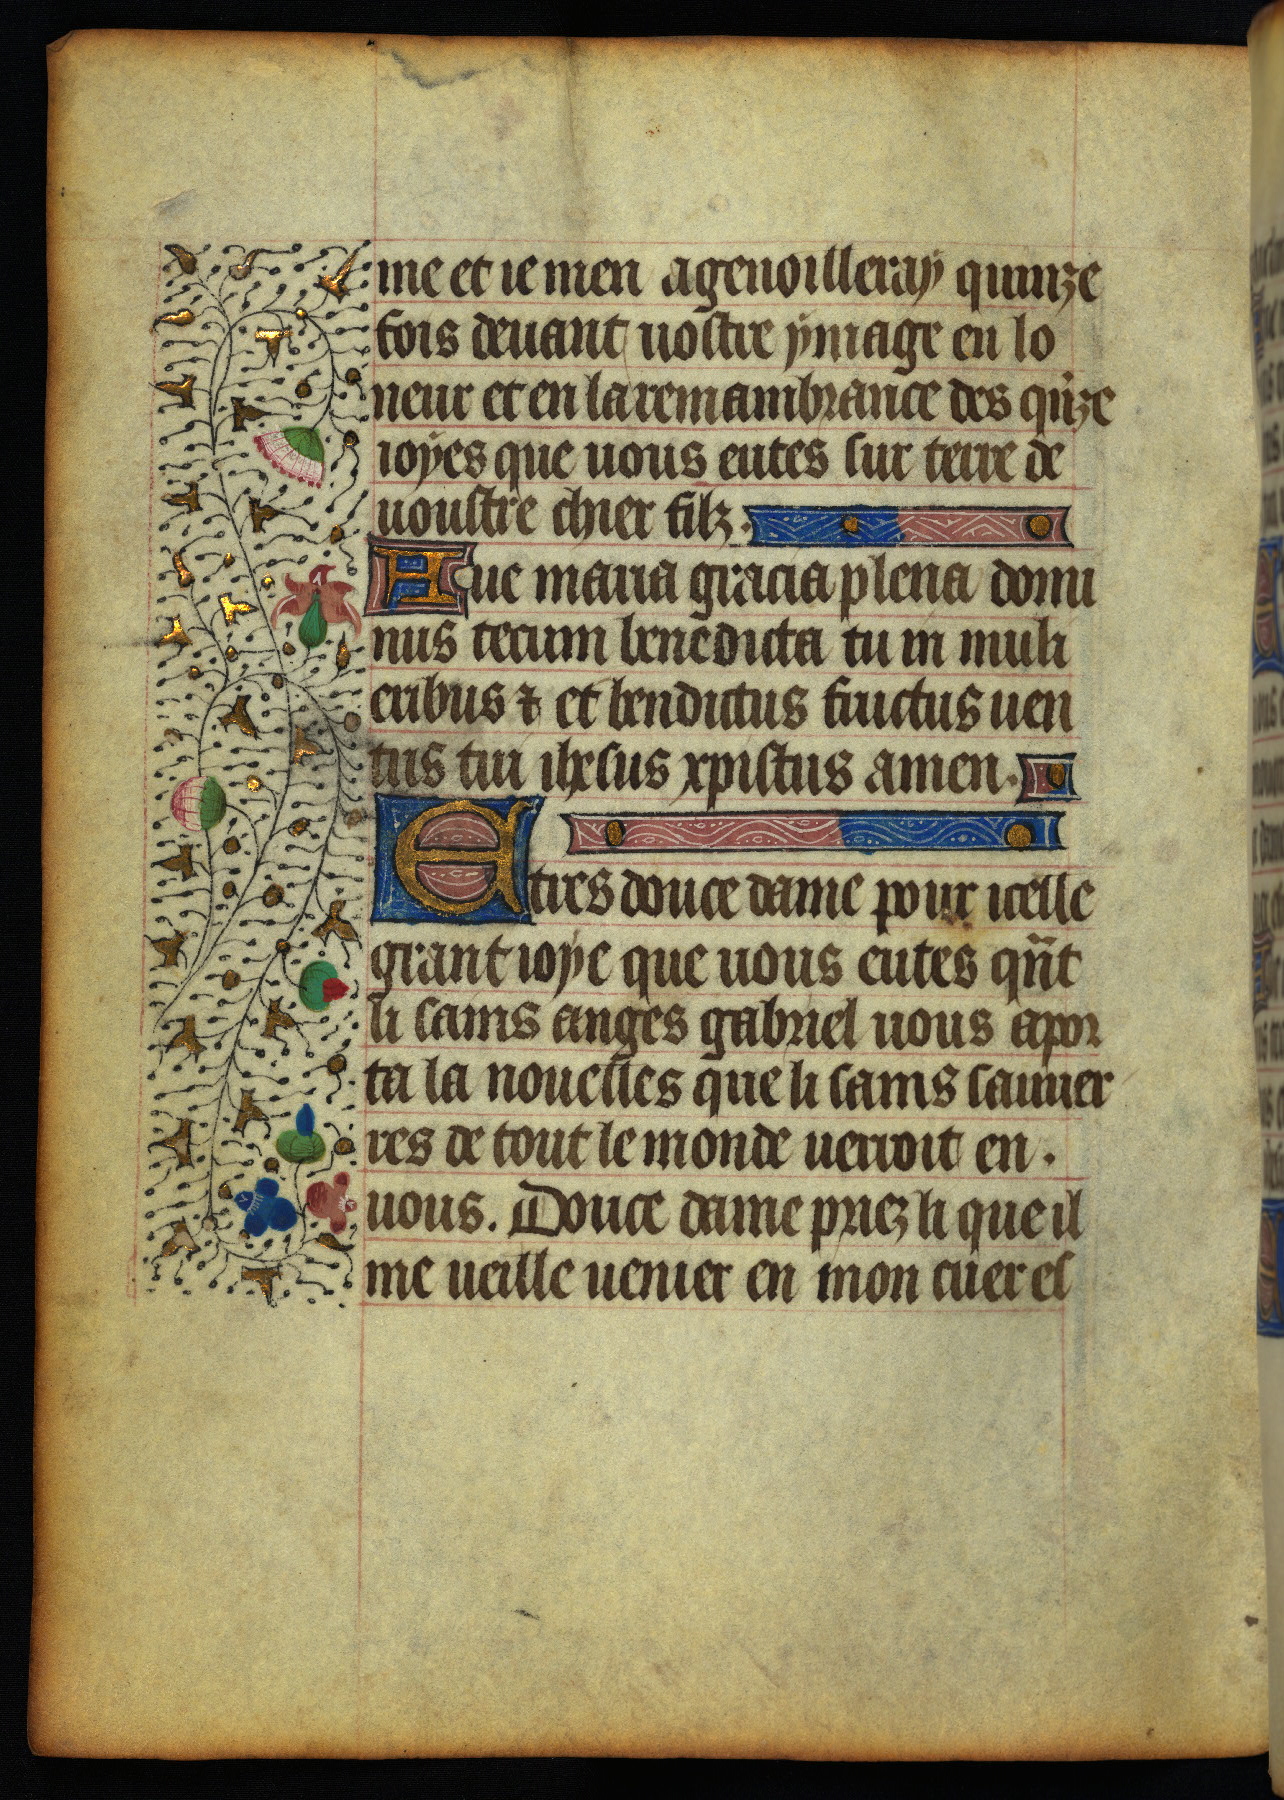 me et ie men agenoilleray quinze
fois deuant uostre ymage en lo
neur et en la remambrance des qi̅ze
ioyes que uous eutes sur terre de
uoustre chier filz.
Aue maria gracia plena domi
nus tecum benedicta tu in muli
eribus ⁊ et bendictus fructus uen
tus tui ihesus xpistus amen.
E tres douce dame pour icelle
grant ioye que uous eutes qn̅t
li sains anges gabriel uous apor
ta la nouelles que li sains sauuer
res de tout le monde uerroit en.
uous. Douce dame priez li que il
me ueille uenier en mon cuer es